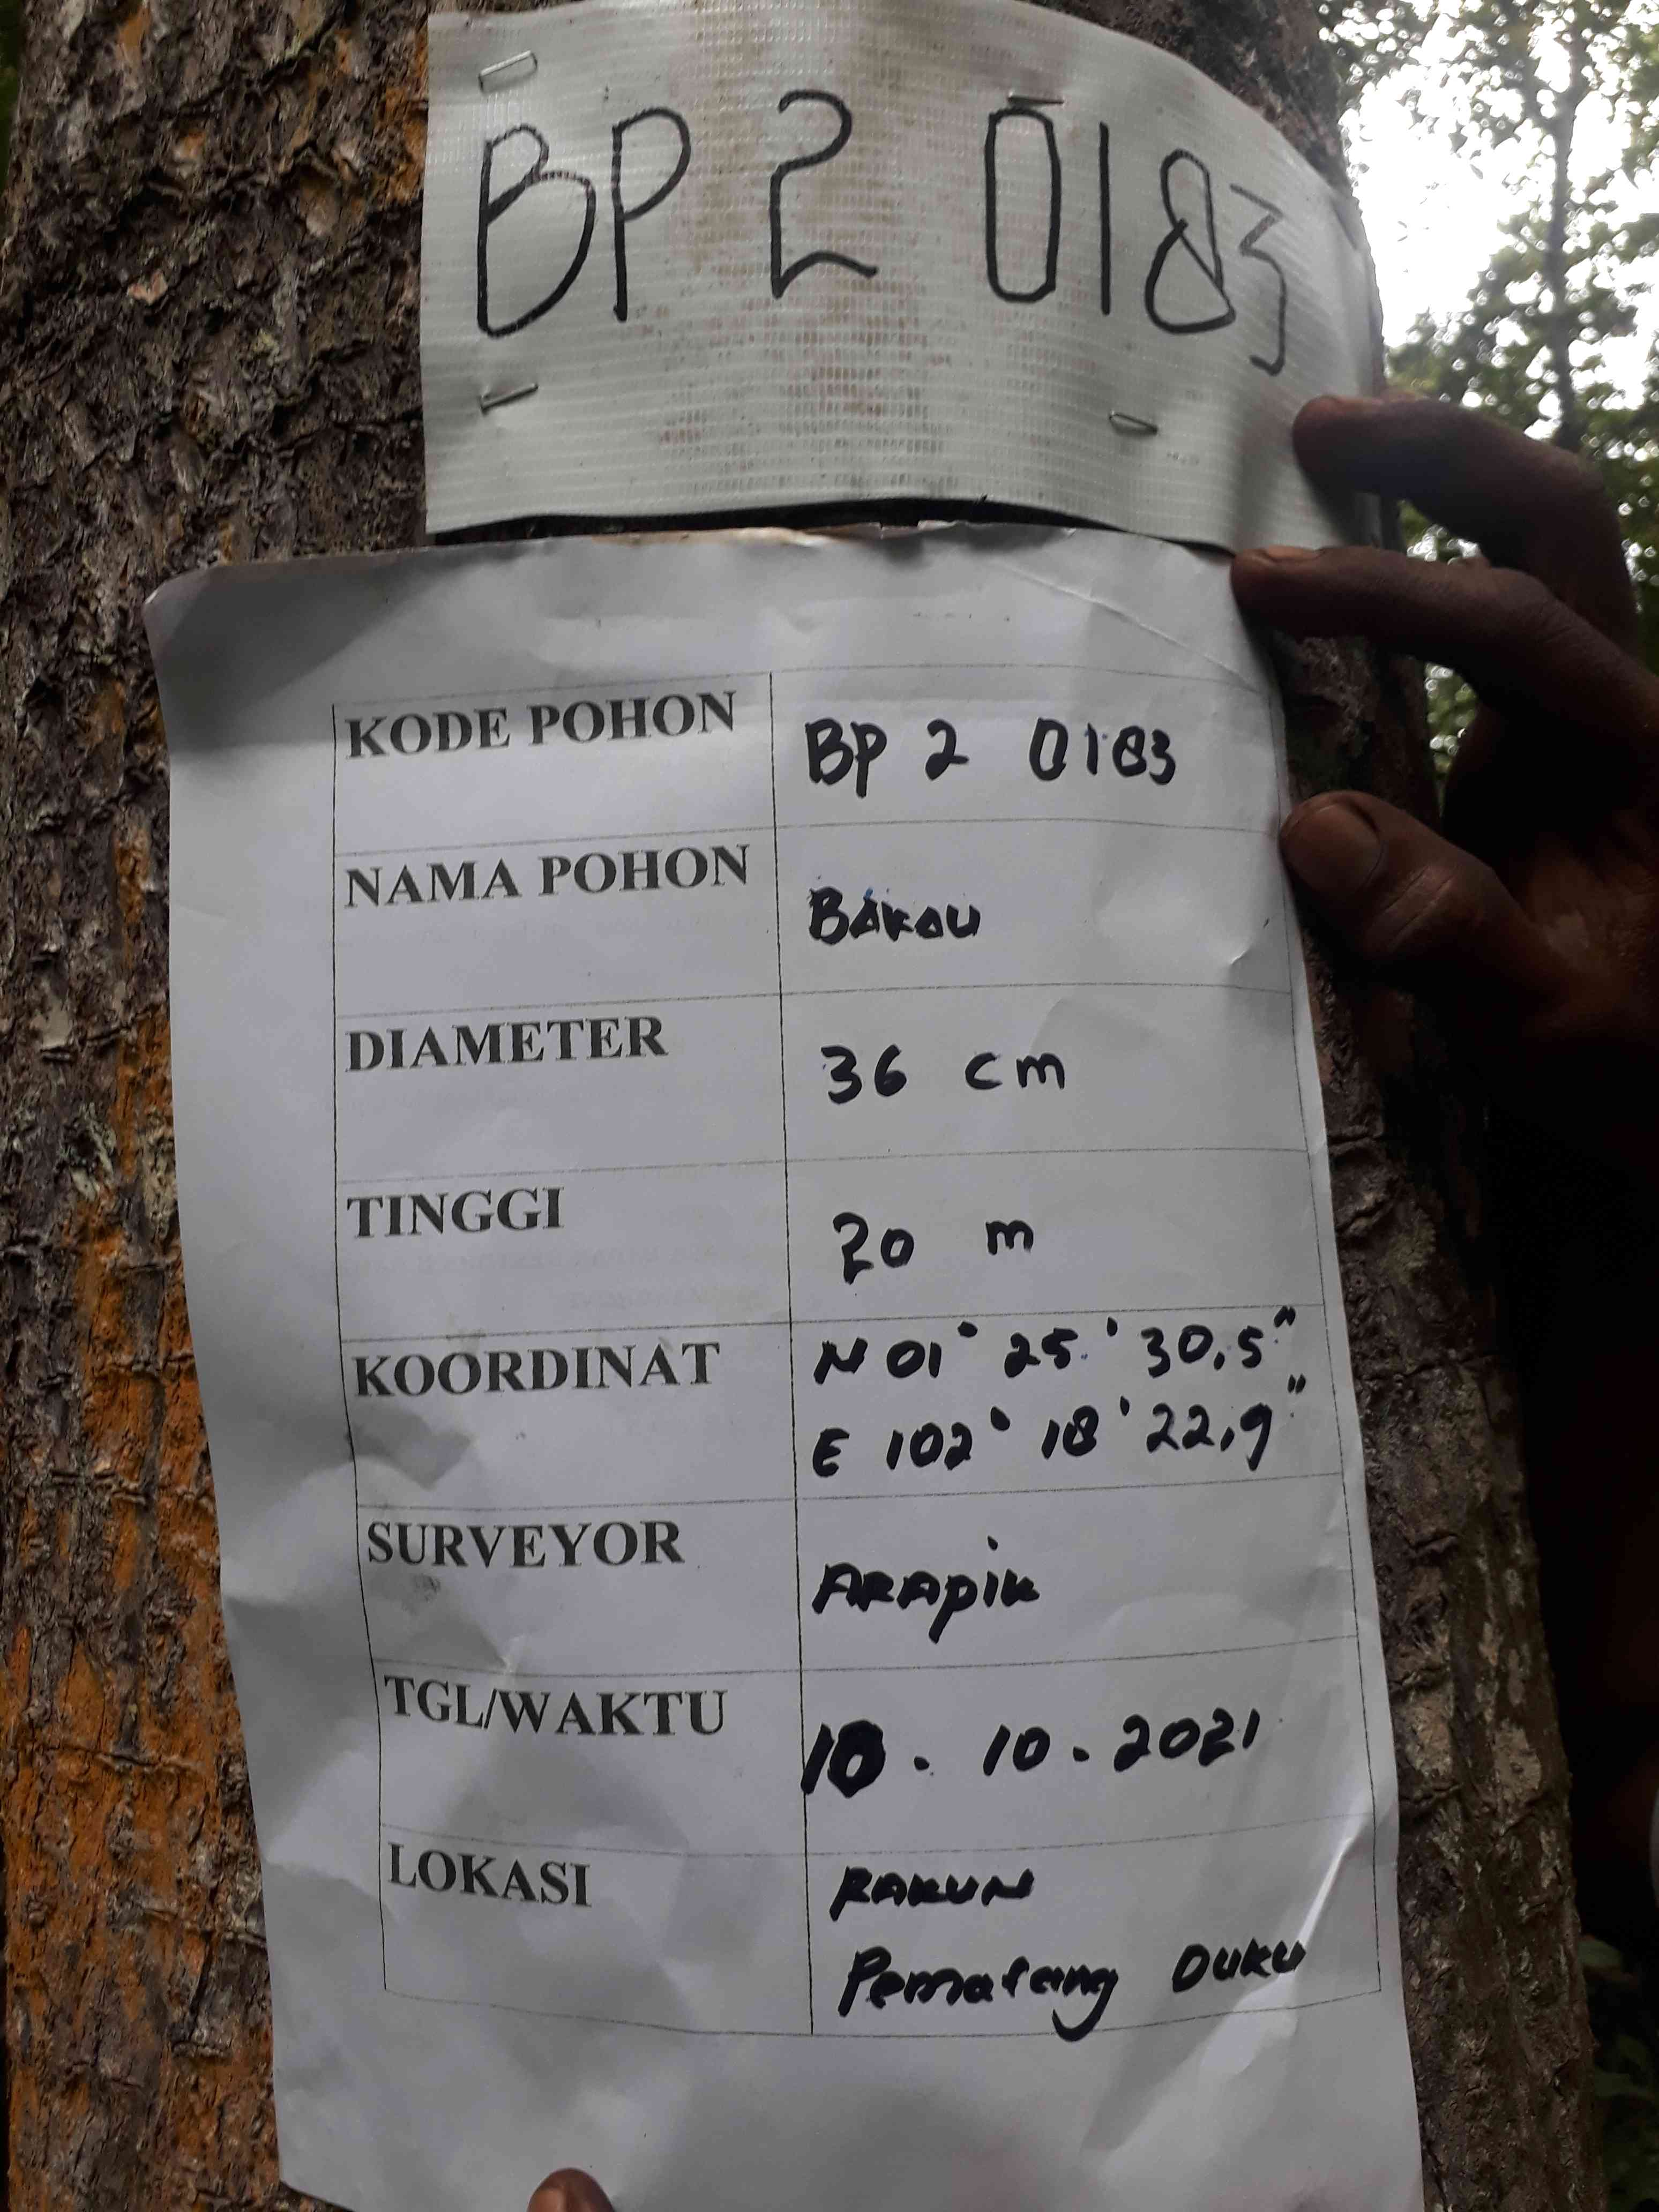 BP 2 0183
KODE POHON BP 2 0183
NAMA POHON BAKAU
DIAMETER 36 cm
TINGGI 20 m
KOORDINAT N 01° 25' 30,5"
E 102° 18' 22,9"
SURVEYOR ARApik
TGL/WAKTU 10 . 10 . 2021
LOKASI RAKUN
Pematang DUKU